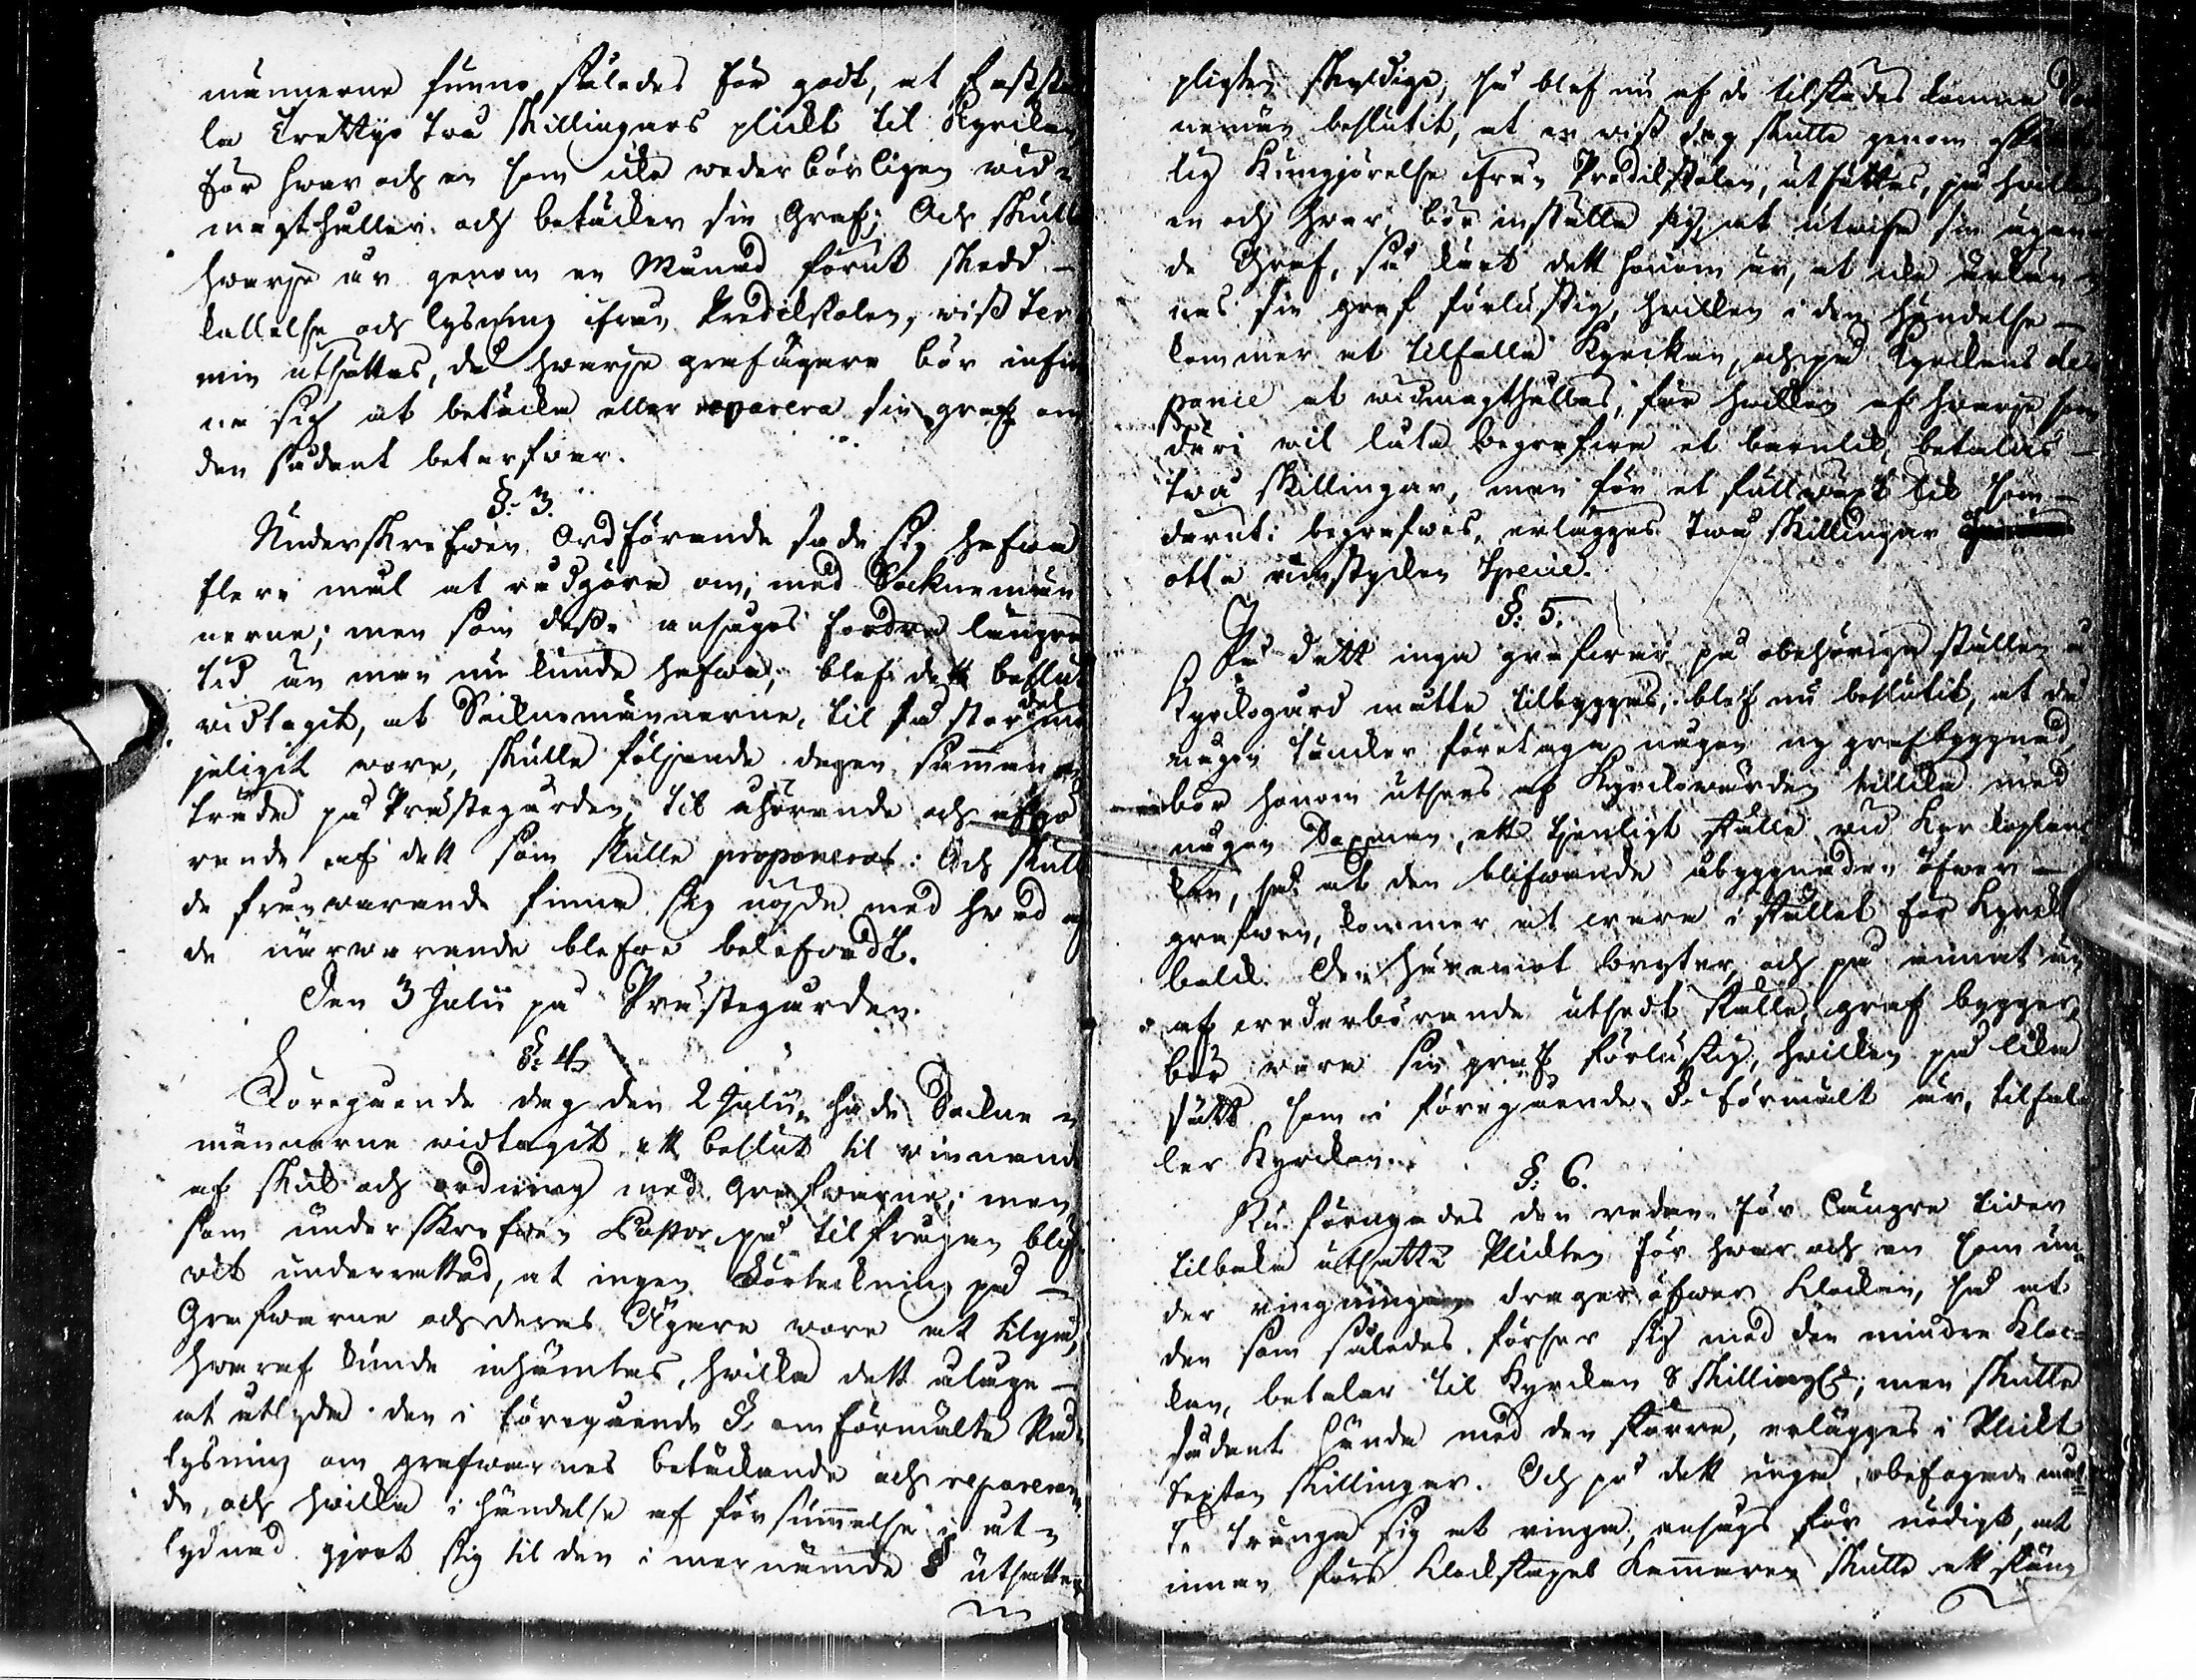 männerne funno således för godt, at fastställa
la Trettijo två Skillingars plickt til Kyrckan
för hwar och en som icke wederbörligen wid-
magthåller och betäcker sin Graf; Och skulle
hwarje år genom en Månad förut skedd
kallelse och lysning ifrån Predikstolen, wiss ter-
min utsättas, då hwarje grafägare bör infin-
na sig at betäcka eller reparera sin graf om
den sådant betarfwar.
§: 3.
Underskrefwen Ordförande sade sig hafwa
flere mål at rådgöra om, med Socknemän-
nerne; men som desse ansågos fordra längre
tid än man nu kunde hafwa; blef dett beslut
widtagit, at Socknemännerne, til så stor del mö-
jeligit wore, skulle följande dagen samman-
träda på Prästegården til åhörande och afgö-
rande af dett som skulle proponeras: Och skulle
de frånwarande finna sig nöjde med hwad af
de närwarande blefwe belefwadt.
Den 3 Julii på Prästegården.
§: 4.
Föregående dag den 2 Julii, hade Sockne-
männerne widtagit ett beslut til winnande
af skick och ordning med Grafwarne; men
som underskrefwen Pastor på tilfrågan blif-
wit underrettad, at ingen förteckning på
Grafwarne och deras Ägare wore at tilgå,
hwaraf kunde inhämtas, hwilka dett ålåge
at utlyda den i föregående § omförmälte På-
lysning om grafwarnes betäckande och reparerande
de, och hwilka i händelse af försummelse i ut-
lydnad gjort sig til den i mernämde § utsatte

pligten skyldige, så blef nu af de tilstädes komne Soc-
nemän beslutit, at en wiss dag skulle genom
lig Kungjörelse ifrån Predikstolen, utsättas, på hwilken
en och hwar bör inställa sig at utwisa sin ägan-
de Graf, så kärt dett honom är, at icke erkän-
nas sin graf förlustig, hwilken i den händelse
kommer at tilfalla Kyrckan, och på Kyrckans de-
pance at widmagthållas, för hwilken af hwarje som
däri wil låta begrafwa et barnlik, betalas
två Skillingar, men för et fullwäxt lik som
däruti begrafwes, erlägges två Skillingar
otta runstycken Specie.
§: 5.
På dett inga grafwar på obehörige ställen å
Kyrckogård måtte tilbyggas, blef nu beslutit, at då
någon täncker företaga någon ny grafbyggnad,
bör honom utsees af Kyrckowärden tillika med
någon Sexman, ett tjenligt ställe wid Kyrckoplanc-
ken, så at den blifwande åbyggnaden öfwer
grafwen, kommer at wara i stället för Kyrcko-
balck. Den häremot bryter och på annat än
af wederbörande utsedt ställe, graf bygger,
bör wara sin graf förlustig, hwilken på lika
sätt som i föregående § förmält är, tilfal-
ler Kyrckan.
§: 6.
Nu förnyades den redan för längre tider
tilbaka utsatte Plickten för hwar och en som un-
der ringningen drager öfwer Klockan, så at
den som således förser sig med den mindre Kloc-
kan, betalar til Kyrckan 8 Skilling; men skulle
sådant hända med den större, erlägges i Plickt
Sexton skillingar. Och på dett inga obefogade måt-
te tränga sig at ringa, ansågs för nödigt, at
innan före Klockstapels Kammaren skulle ett stäng